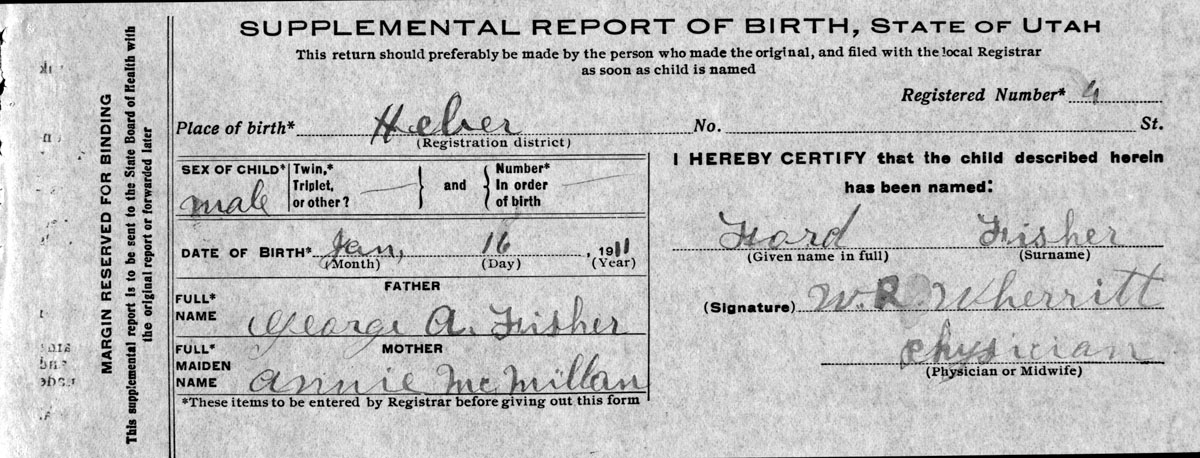 SUPPLEMENTAL REPORT OF BIRTH, STATE OF UTAH
This return should preferably be made by the person who made the original, and filed with the local Registrar
as soon as child is named
Registered Number* 4
Place of birth* Heber No. St.
(Registration district)
SEX OF CHILD* male
Twin,*
Triplet,
or other?
and
Number*
In order
of birth
DATE OF BIRTH* Jan, 16, 1911
(Month) (Day) (Year)
FATHER
FULL*
NAME George A. Fisher
MOTHER
FULL*
MAIDEN
NAME Annie McMillan
*These items to be entered by Registrar before giving out this form
I HEREBY CERTIFY that the child described herein
has been named:
Ford Fisher
(Given name in full) (Surname)
(Signature) W. R. Wherritt
Physician
(Physician or Midwife)
MARGIN RESERVED FOR BINDING
This supplemental report is to be sent to the State Board of Health with
the original report or forwarded later